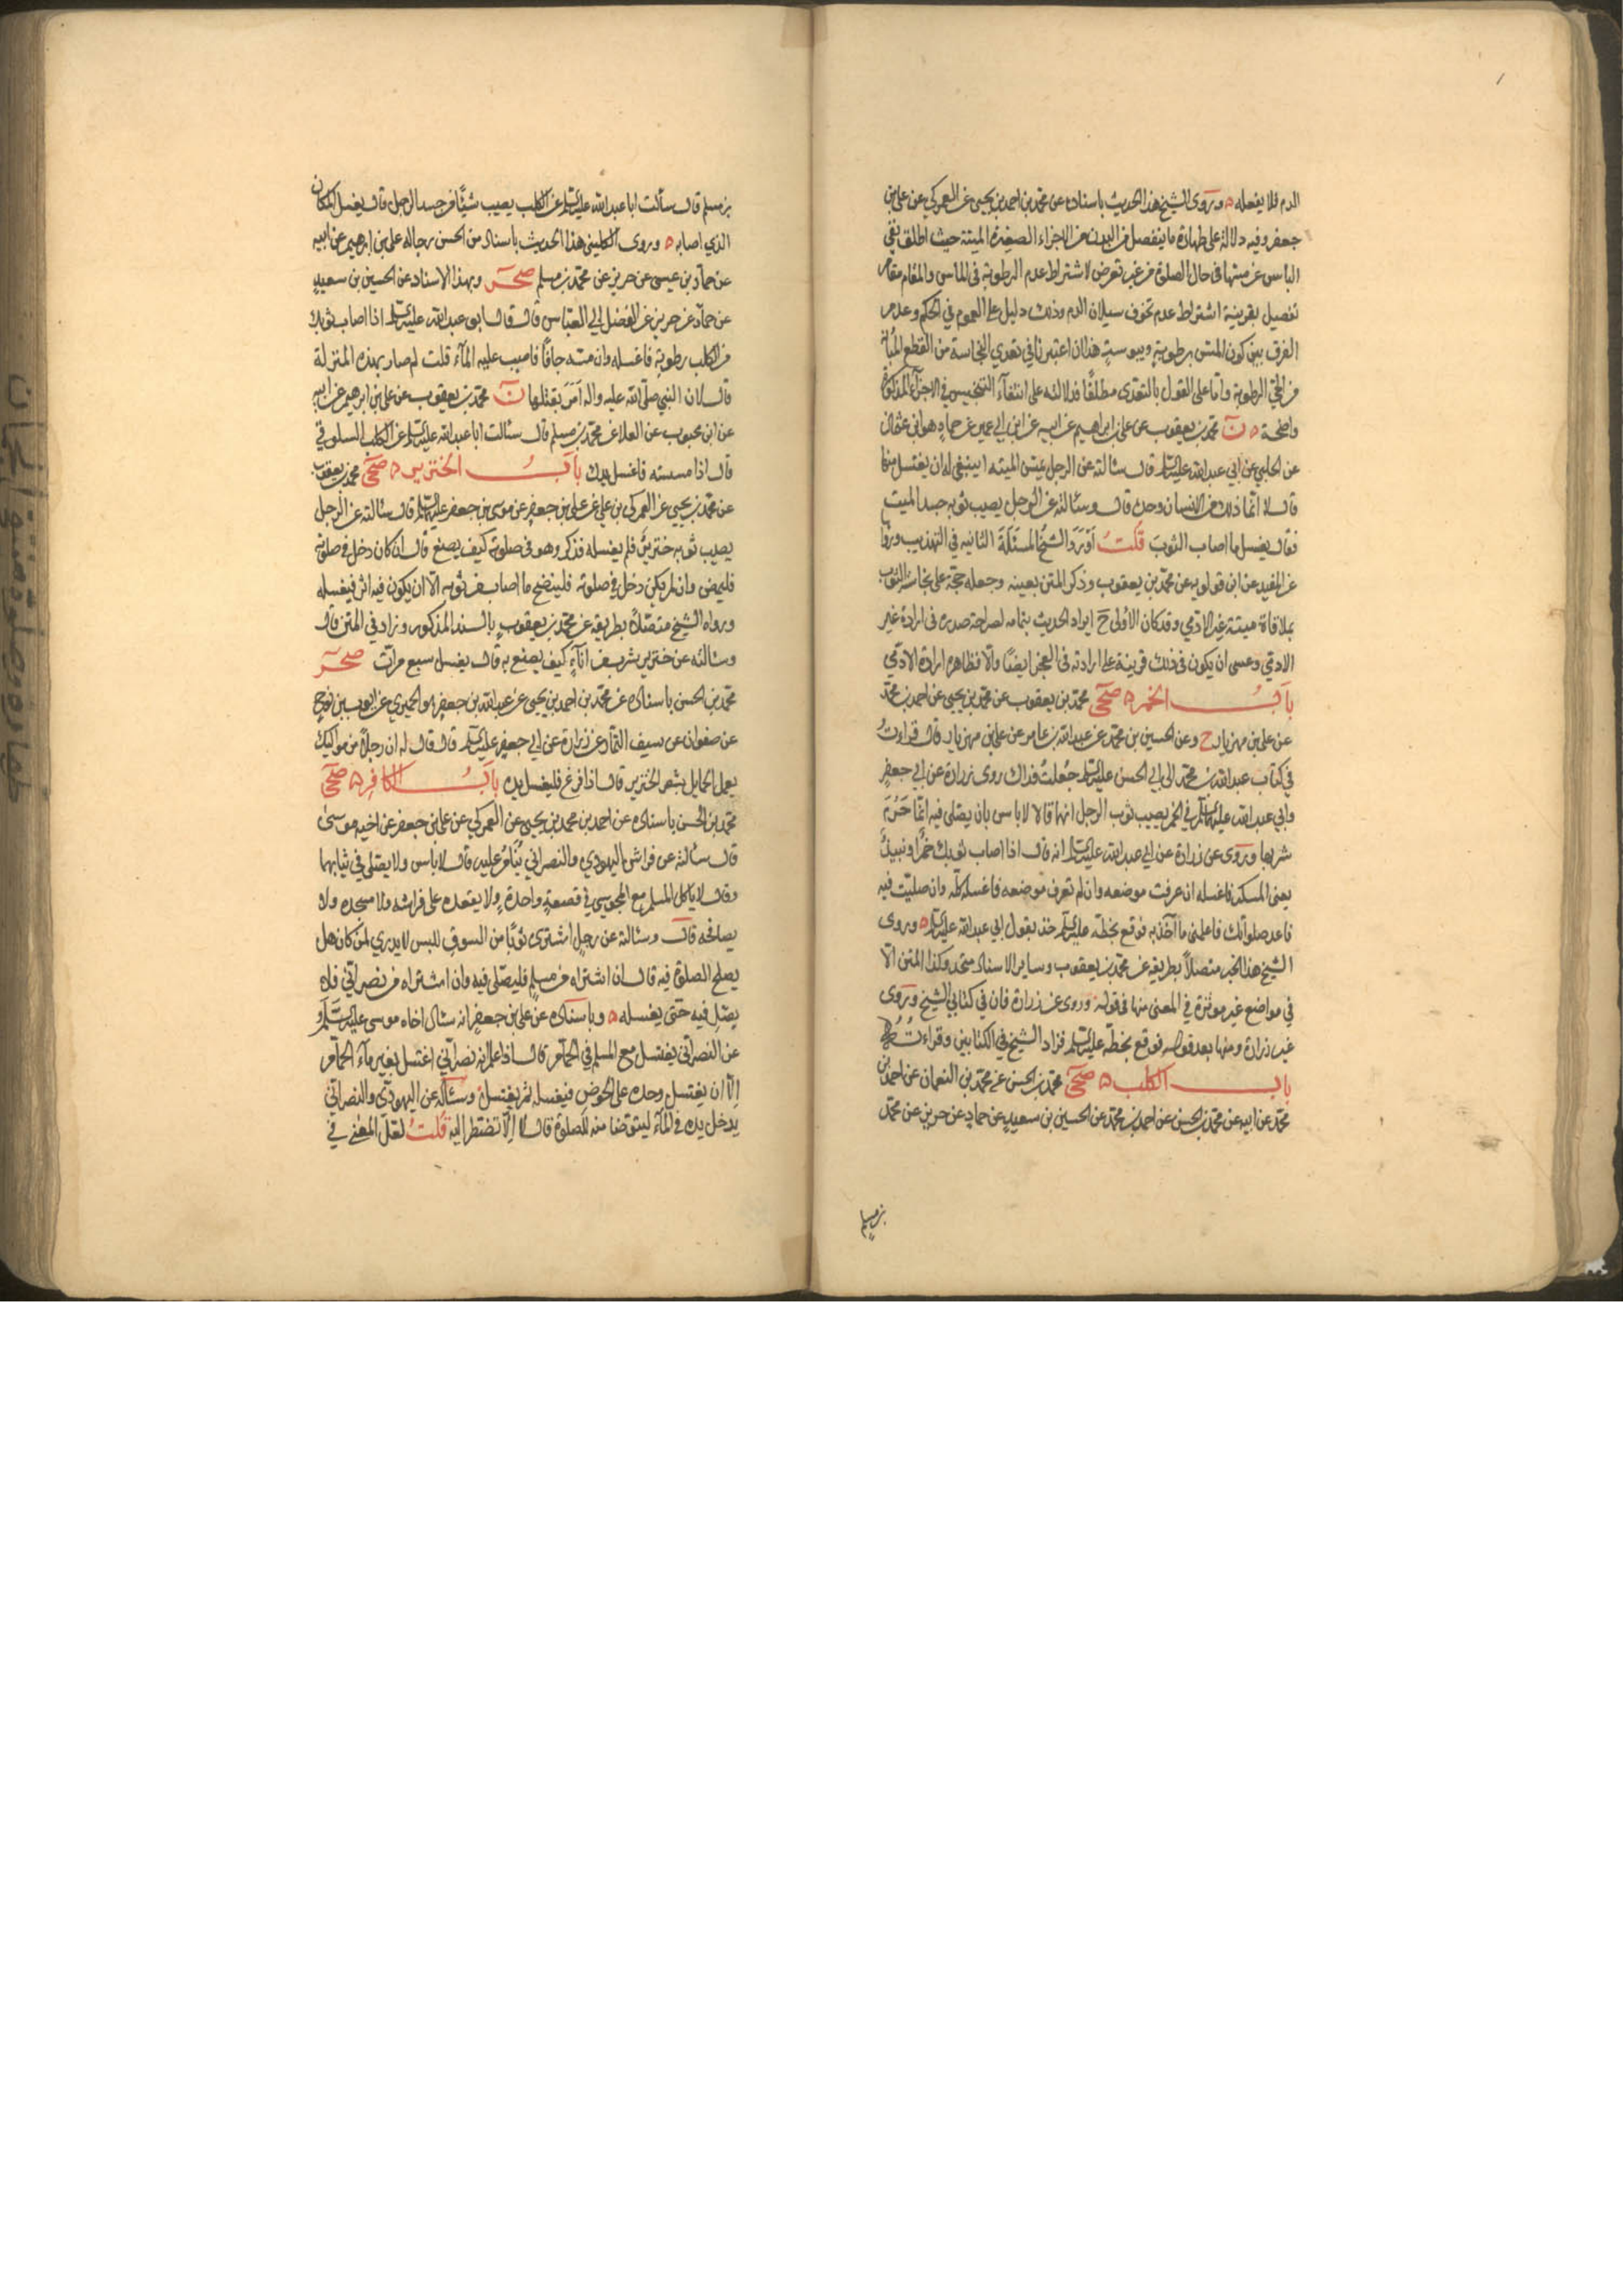 الدم فلا يفعله ۵ وروى الشيخ هذا الحديث باسناده عن محمد بن احمد بن يحيى عن العمركي عن علي بن
جعفر وفيه دلالة على طهارة ما ينفصل من البدن من الاجزاء الصغيرة الميتة حيث اطلق نفي
الباس عن مسها في حال الصلوة من غير تعرض لاشتراط عدم الرطوبة في الماس والمقام مقام
تفصيل بقرينة اشتراط عدم تخوف سيلان الدم وذلك دليل على العموم في الحكم وعدم
الفرق بين كون المس برطوبة ويبوسة هذا ان اعتبرنا في تعدي النجاسة من القطع المبانة
من الحي الرطوبة واما على القول بالتعدي مطلقًا فدلالته على انتفاء التنجيس في الاجزاء المذكورة
واضحة ۵ ن محمد بن يعقوب عن علي بن ابراهيم عن ابيه عن ابن ابي عمير عن حماد هو ابن عثمان
عن الحلبي عن ابي عبد الله عليه السلم قال سئالته عن الرجل يمس الميته اينبغي له ان يغتسل منها
قال لا انما ذلك من الانسان وحده قال وسئالته عن الرجل يصيب ثوبه جسد الميت
فقال يغسل ما اصاب الثوب قلت اورد الشيخ المسئلة الثانيه في التهذيب ورواها
عن المفيد عن ابن قولويه عن محمد بن يعقوب وذكر المتن بعينه وجعله حجة على نجاسة الثوب
بملاقاة ميتة غير الادمي وقد كان الاولى ح ايراد الحديث بتمامه لصراحة صدره في ارادة غير
الادمي وعسى ان يكون في ذلك قرينة على ارادته في العجز ايضًا والا فظاهره ارادة الادمي
باب الخمر ۵ صحي محمد بن يعقوب عن محمد بن يحيى عن احمد بن محمد
عن علي بن مهزيار ح وعن الحسين بن محمد عن عبد الله بن عامر عن علي بن مهزيار قال قراءت
في كتاب عبد الله بن محمد الى ابي الحسن عليه السلم جعلت فداك روى زرارة عن ابي جعفر
وابي عبد الله عليهما السلم في الخمر يصيب ثوب الرجل انهما قالا لا باس بان يصلى فيه انما حرم
شربها وروى عن زرارة عن ابي عبد الله عليه السلم انه قال اذا اصاب ثوبك خمر او نبيذ
يعني المسكر فاغسله ان عرفت موضعه وان لم تعرف موضعه فاغسله كله وان صليت فيه
فاعد صلواتك فاعلمني ما آخذ به فوقع بخطه عليه السلم خذ بقول ابي عبد الله عليه السلم ۵ وروى
الشيخ هذا الخبر متصلاً بطريقه عن محمد بن يعقوب وساير الاسناد متحد وكذا المتن الا
في مواضع غير موثرة في المعنى منها في قوله وروى عن زرارة فان في كتابي الشيخ وروى
غير زرارة ومنها بعد قوله فوقع بخطه عليه السلم فزاد الشيخ في الكتابين وقراءته
باب الكلب ۵ صحي محمد بن الحسن عن محمد بن النعمان عن احمد بن
محمد عن ابيه عن محمد بن الحسن عن احمد بن محمد عن الحسين بن سعيد عن حماد عن حريز عن محمد
بن مسلم
بن مسلم قال سألت ابا عبد الله عليه السلم عن الكلب يصيب شيئًا من جسد الرجل قال يغسل المكان
الذي اصابه ۵ وروى الكليني هذا الحديث باسناد من الحسن رجاله علي بن ابرهيم عن ابيه
عن حماد بن عيسى عن حريز عن محمد بن مسلم صحر وبهذا الاسناد عن الحسين بن سعيد
عن حماد عن حريز عن الفضل ابي العباس قال قال ابو عبد الله عليه السلم اذا اصاب ثوبك
من الكلب رطوبة فاغسله وان مسه جافًا فاصبب عليه الماء قلت لم صار بهذه المنزلة
قال لان النبي صلى الله عليه واله امر بقتلها ن محمد بن يعقوب عن علي بن ابرهيم عن ابيه
عن ابن محبوب عن العلا عن محمد بن مسلم قال سئالت ابا عبد الله عليه السلم عن الكلب السلوقي
قال اذا مسسته فاغسل يدك باب الخنزير ۵ صحي محمد بن يعقوب
عن محمد بن يحيى عن العمركي بن علي عن علي بن جعفر عن موسى بن جعفر عليهما السلم قال سئالته عن الرجل
يصيب ثوبه خنزير فلم يغسله فذكر وهو في صلوته كيف يصنع قال ان كان دخل في صلوته
فليمض وان لم يكن دخل في صلوته فلينضح ما اصاب من ثوبه الا ان يكون فيه اثر فيغسله
ورواه الشيخ متصلاً بطريقه عن محمد بن يعقوب بالسند المذكور وزاد في المتن قال
وسئالته عن خنزير شرب في اناءٍ كيف يصنع به قال يغسل سبع مرات صحر
محمد بن الحسن باسناده عن محمد بن احمد بن يحيى عن عبد الله بن جعفر هو الحميري عن ايوب بن نوح
عن صفوان عن سيف التمار عن زرارة عن ابي جعفر عليه السلم قال قال له ان رجلاً من مواليك
يعمل الحمايل بشعر الخنزير قال اذا فرغ فليغسل يده باب الكافر ۵ صحي
محمد بن الحسن باسناده عن احمد بن محمد بن يحيى عن العمركي عن علي بن جعفر عن اخيه موسى
قال سألته عن فراش اليهودي والنصراني ينام عليه قال لا باس ولا يصلى في ثيابهما
وقال لا ياكل المسلم مع المجوسي في قصعة واحدة ولا يقعده على فراشه ولا مسجده ولا
يصافحه قال وسئالته عن رجل اشترى ثوبًا من السوق للبس لا يدري لمن كان هل
يصلح الصلوة فيه قال ان اشتراه من مسلم فليصلى فيه وان اشتراه من نصراني فلا
يصلي فيه حتى يغسله ۵ وباسناده عن علي بن جعفر انه سئال اخاه موسى عليه السلم
عن النصراني يغتسل مع المسلم في الحمام قال اذا علم انه نصراني اغتسل بغير ماء الحمام
الا ان يغتسل وحده على الحوض فيغسله ثم يغتسل وسئاله عن اليهودي والنصراني
يدخل يده في الماء ليتوضا منه للصلوة قال لا الا ان تضطر اليه قلت لعل المعني في